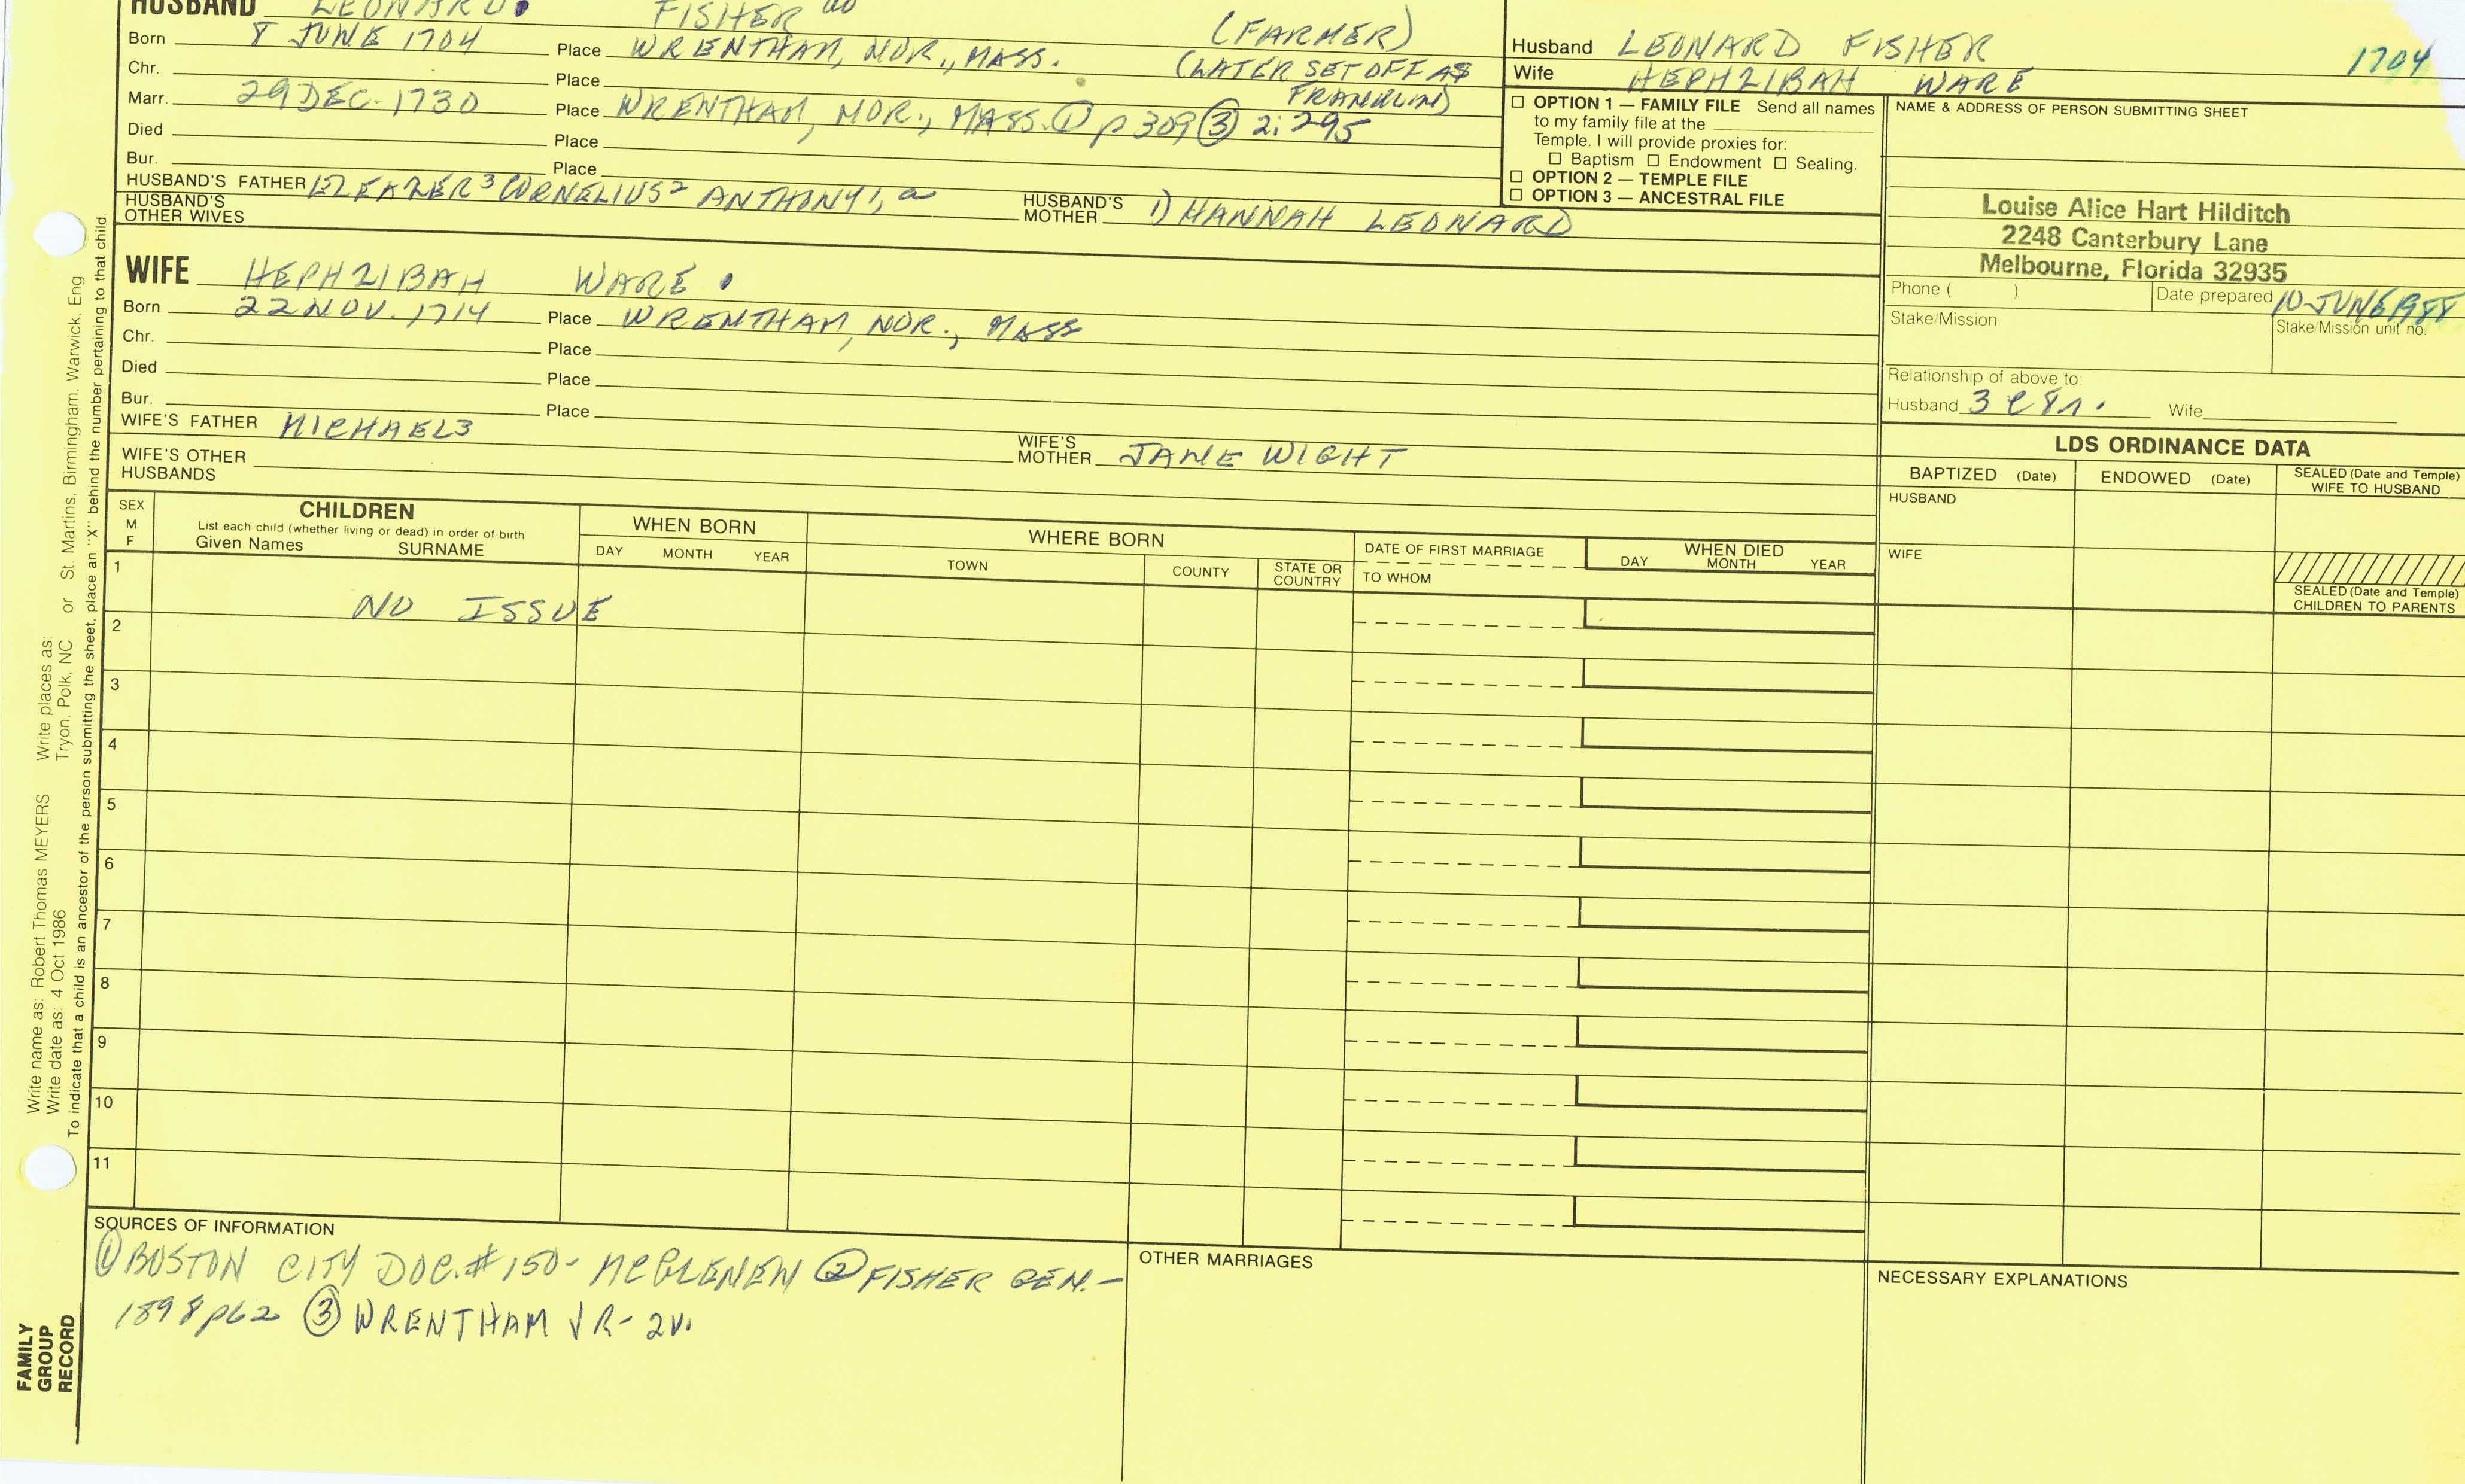 HUSBAND LEONARD. FISHER
Born 8 JUNE 1704 Place WRENTHAM, NOR., MASS. (FARMER)
Chr. Place (LATER SET OFF AS
FRANKLIN)
Marr. 29 DEC. 1730 Place WRENTHAM, NOR., MASS. ① p 309 ③ 2:295
Died Place
Bur. Place
HUSBAND'S FATHER ELEAZER3 CORNELIUS2 ANTHONY1, a HUSBAND'S MOTHER 1) HANNAH LEONARD
HUSBAND'S OTHER WIVES
Husband LEONARD FISHER 1704
Wife HEPHZIBAH WARE
☐ OPTION 1 — FAMILY FILE Send all names
to my family file at the
Temple. I will provide proxies for:
☐ Baptism ☐ Endowment ☐ Sealing.
☐ OPTION 2 — TEMPLE FILE
☐ OPTION 3 — ANCESTRAL FILE
NAME & ADDRESS OF PERSON SUBMITTING SHEET
Louise Alice Hart Hilditch
2248 Canterbury Lane
Melbourne, Florida 32935
Phone ( ) Date prepared 10 JUNE 1988
Stake/Mission Stake/Mission unit no.
Relationship of above to:
Husband Wife
WIFE HEPHZIBAH WARE.
Born 22 NOV. 1714 Place WRENTHAM, NOR., MASS
Chr. Place
Died Place
Bur. Place
WIFE'S FATHER MICHAEL3 WIFE'S MOTHER JANE WIGHT
WIFE'S OTHER HUSBANDS
LDS ORDINANCE DATA
BAPTIZED (Date) ENDOWED (Date) SEALED (Date and Temple)
WIFE TO HUSBAND
HUSBAND
WIFE
SEALED (Date and Temple)
CHILDREN TO PARENTS
SEX
M
F
CHILDREN
List each child (whether living or dead) in order of birth
Given Names SURNAME
WHEN BORN
DAY MONTH YEAR
WHERE BORN
TOWN COUNTY STATE OR COUNTRY
DATE OF FIRST MARRIAGE
TO WHOM
WHEN DIED
DAY MONTH YEAR
1 NO ISSUE
2
3
4
5
6
7
8
9
10
11
SOURCES OF INFORMATION
① BOSTON CITY DOC. #150- McGLENEN ② FISHER GEN.-
1898 p62 ③ WRENTHAM VR- 2V.
OTHER MARRIAGES
NECESSARY EXPLANATIONS
Write name as: Robert Thomas MEYERS Write places as:
Write date as: 4 Oct 1986 Tryon, Polk, NC or St. Martins, Birmingham, Warwick, Eng
To indicate that a child is an ancestor of the person submitting the sheet, place an "X" behind the number pertaining to that child.
FAMILY
GROUP
RECORD